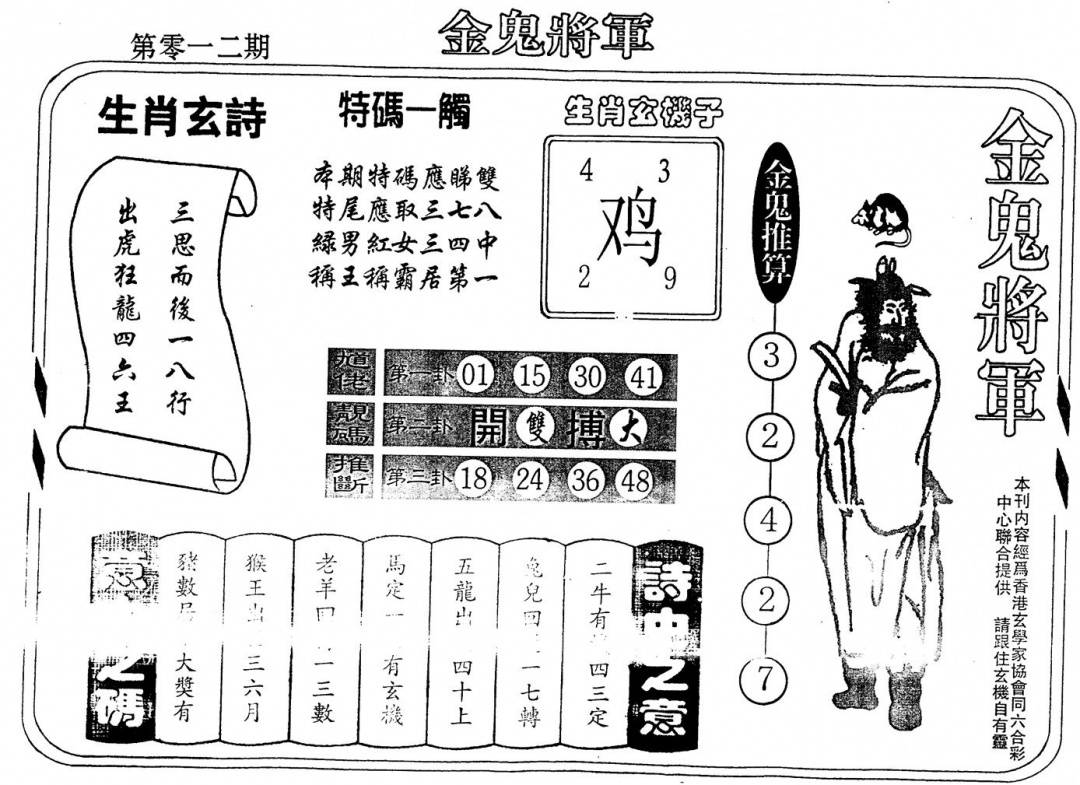 第零一二期
金鬼將軍
生肖玄詩
三思而後一八行
出虎狂龍四六王
特碼一觸
本期特碼應睇雙
特尾應取三七八
綠男紅女三四中
稱王稱霸居第一
生肖玄機子
4 3
鸡
2 9
金鬼推算
3
2
4
2
7
金鬼將軍
本刊内容經爲香港玄學家協會同六合彩
中心聯合提供 請跟住玄機自有靈
靚碼
推斷
第一卦 01 15 30 41
第二卦 開 雙 搏 大
第三卦 18 24 36 48
詩中之意
二牛有 四三定
兔兒回 一七轉
五龍出 四十上
馬定一 有玄機
老羊回 一三數
猴王出 三六月
豬數 大獎有
意 之碼